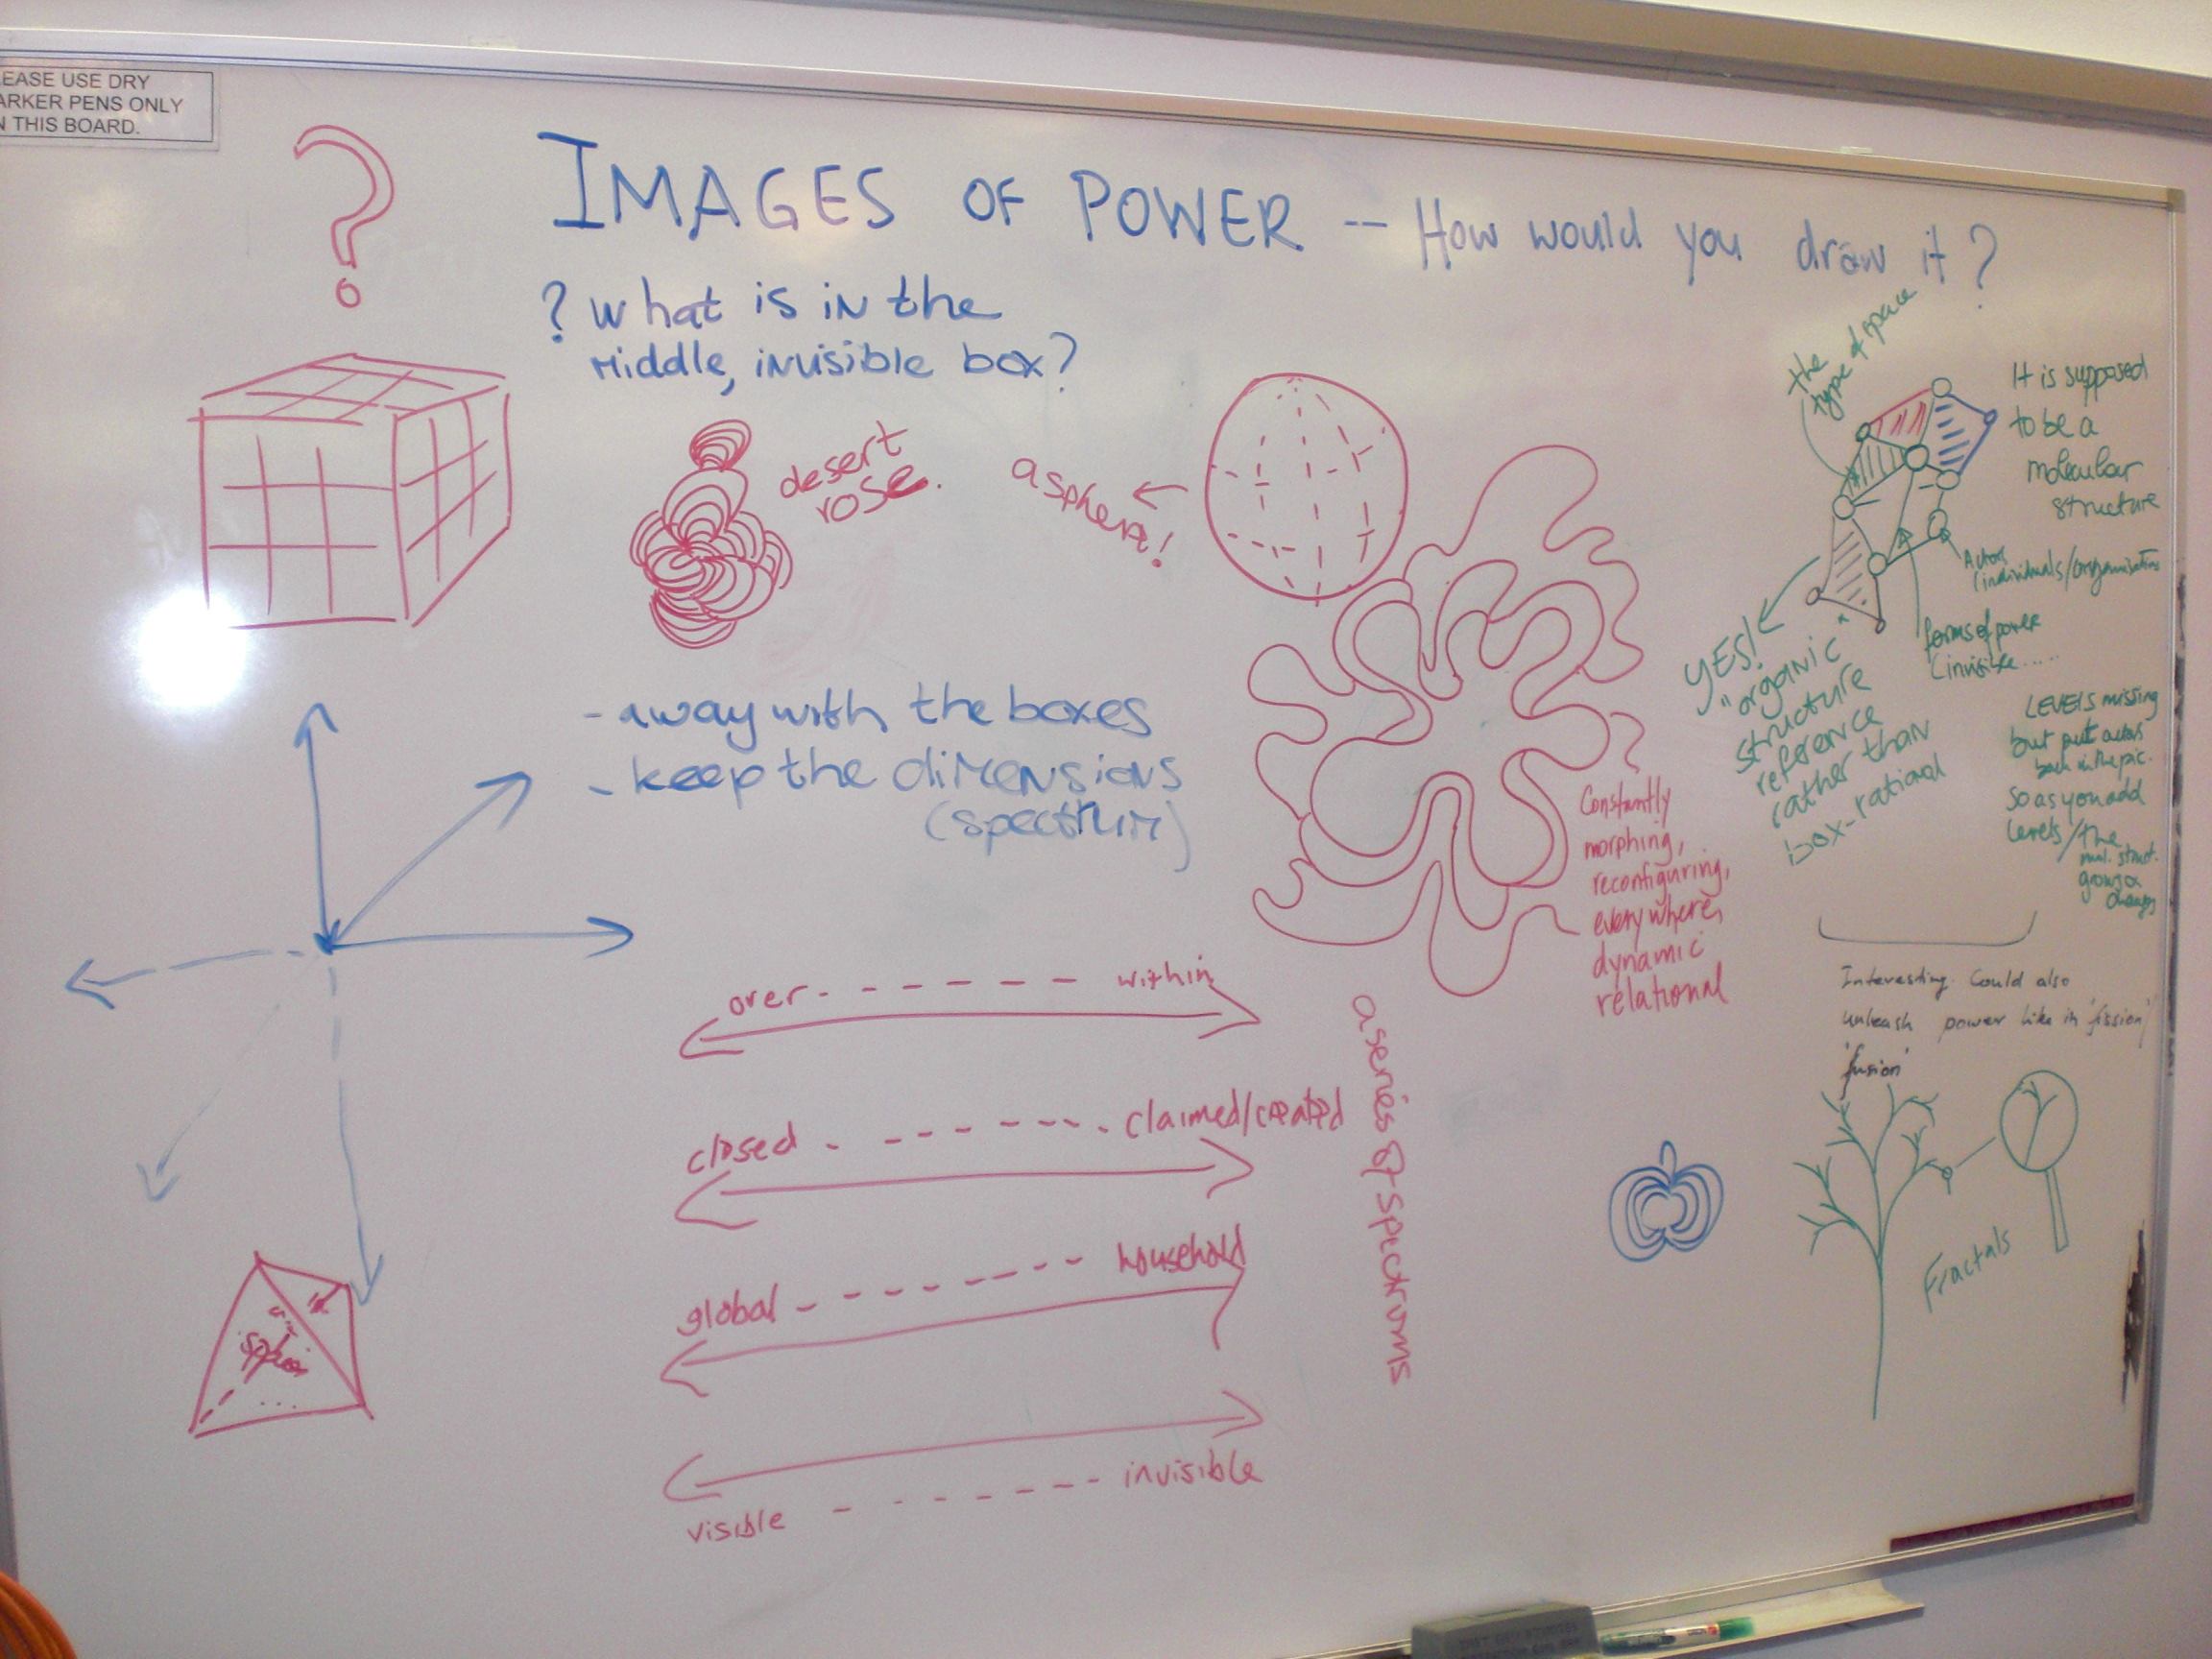 EASE USE DRY
ARKER PENS ONLY
N THIS BOARD.
?
IMAGES OF POWER -- How would you draw it?
? what is in the
middle, invisible box?
desert
rose.
a sphere!
- away with the boxes
- keep the dimensions
(spectrum)
over - - - - - - within
closed - - - - - - claimed/created
global - - - - - - household
visible - - - - - - invisible
a series of spectrums
Constantly
morphing,
reconfiguring,
everywhere,
dynamic
relational
the
type of space
It is supposed
to be a
molecular
structure
Actors
(individuals/organisations
forms of power
(invisible.....
YES!
"organic"
structure
reference
rather than
box-rational
LEVELS missing
but put actors
back in the pic.
So as you add
levels/the
mol. struct.
grows &
changes
Interesting. Could also
unleash power like in 'fission'
'fusion'
Fractals